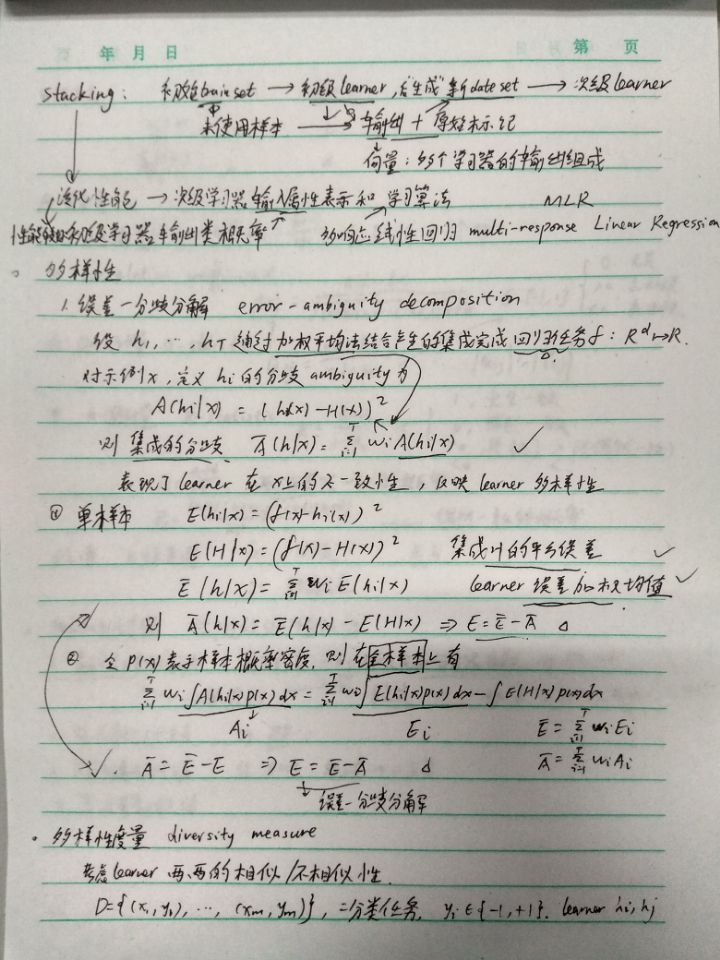 年 月 日 第 页
stacking: 初始train set → 初级learner, "生成"新dateset → 次级learner
未使用样本 → 输出 + 原始标记
向量: 多个学习器的输出组成
泛化性能 → 次级学习器输入属性表示和 学习算法 MLR
初级学习器输出类概率 多响应线性回归 multi-response Linear Regression
。多样性
1. 误差-分歧分解 error-ambiguity decomposition
假设 h₁, ⋯, h_T 通过加权平均法结合产生的集成完成回归任务 f: R^d ↦ R.
对示例x, 定义 hi 的分歧 ambiguity 为
A(hi|x) = (hi(x)-H(x))²
则 集成的分歧 Ā(h|x) = Σ_{i=1}^T wi A(hi|x) ✓
表现了 learner 在 x上的不一致性, 反映 learner 多样性
① 单样本 E(hi|x) = (f(x)-hi(x))²
E(H|x) = (f(x)-H(x))² 集成H的平方误差 ✓
Ē(h|x) = Σ_{i=1}^T wi E(hi|x) learner 误差加权均值 ✓
则 Ā(h|x) = Ē(h|x) - E(H|x) ⇒ E = Ē-Ā △
② 令 p(x) 表示样本概率密度, 则 在全样本上有
Σ_{i=1}^T wi ∫A(hi|x)p(x)dx = Σ_{i=1}^T wi ∫E(hi|x)p(x)dx - ∫E(H|x)p(x)dx
Ai Ei Ē = Σ_{i=1}^T wiEi
✓. Ā = Ē-E ⇒ E = Ē-Ā △ Ā = Σ_{i=1}^T wiAi
误差-分歧分解
。多样性度量 diversity measure
考虑 learner 两两的相似/不相似性.
D={(x₁,y₁), ⋯, (xm,ym)}, 二分类任务, yi∈{-1,+1}. learner hi, hj